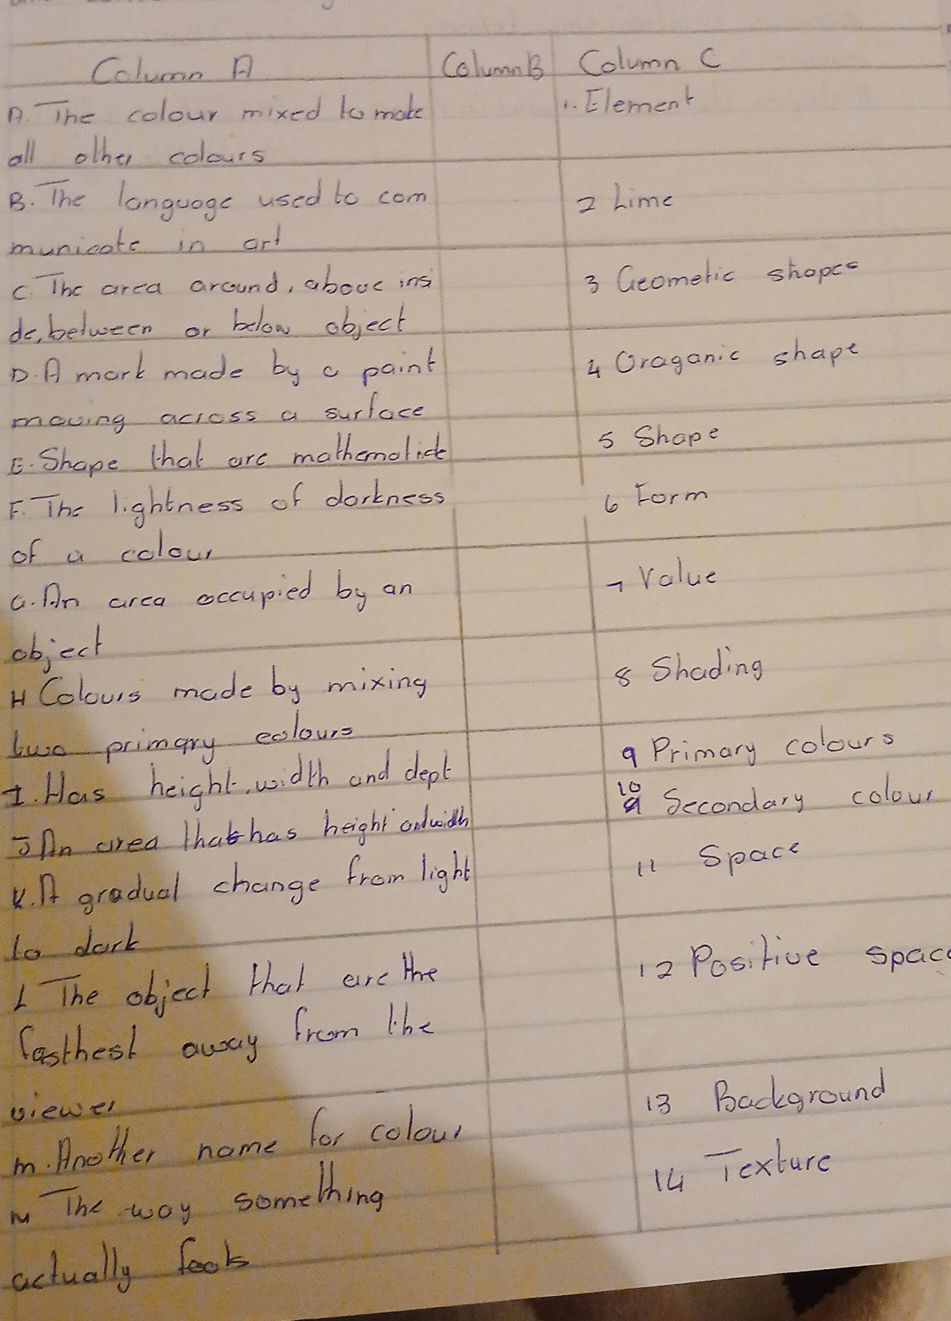 Column A Column B Column C
A. The colour mixed to make 1. Element
all other colours
B. The language used to com 2 Lime
municate in art
C. The area around, above insi 3 Geometic shapes
de, between or below object
D. A mark made by a paint 4 Oraganic shape
moving across a surface
5 Shape
E. Shape that are mathematick
F. The lightness of darkness 6 Form
of a colour
G. An area occupied by an 7 Value
object
H Colours made by mixing 8 Shading
two primary colours
9 Primary colours
I. Has height, width and dept 10 Secondary colour
J An area that has height and width
K. A gradual change from light 11 Space
to dark
L The object that are the 12 Positive space
fasthest away from the
viewer 13 Background
m. Another name for colour
N The way something 14 Texture
actually feels